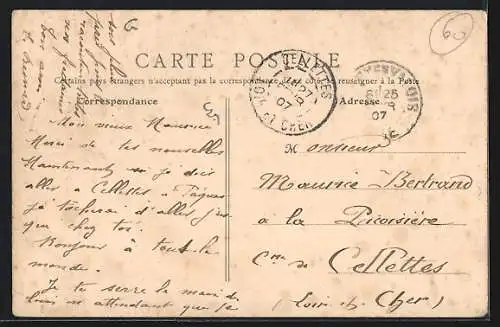 CARTE POSTALE
Certains pays étrangers n'acceptent pas la correspondance se renseigner à la Poste
Correspondance
Adresse
CELLETTES
27
07
LOIR ET CHER
25
07
60
Mon vieux Maurice
Merci de tes nouvelles
Maintenant si je dois
aller à Cellettes à Pâques
je tâcherai d'aller jus
que chez toi.
Bonjour à tout le
monde.
Je te serre la main de
loin en attendant que je
Monsieur
Maurice Bertrand
à la Picoisière
Cne de Cellettes
(Loir et Cher)